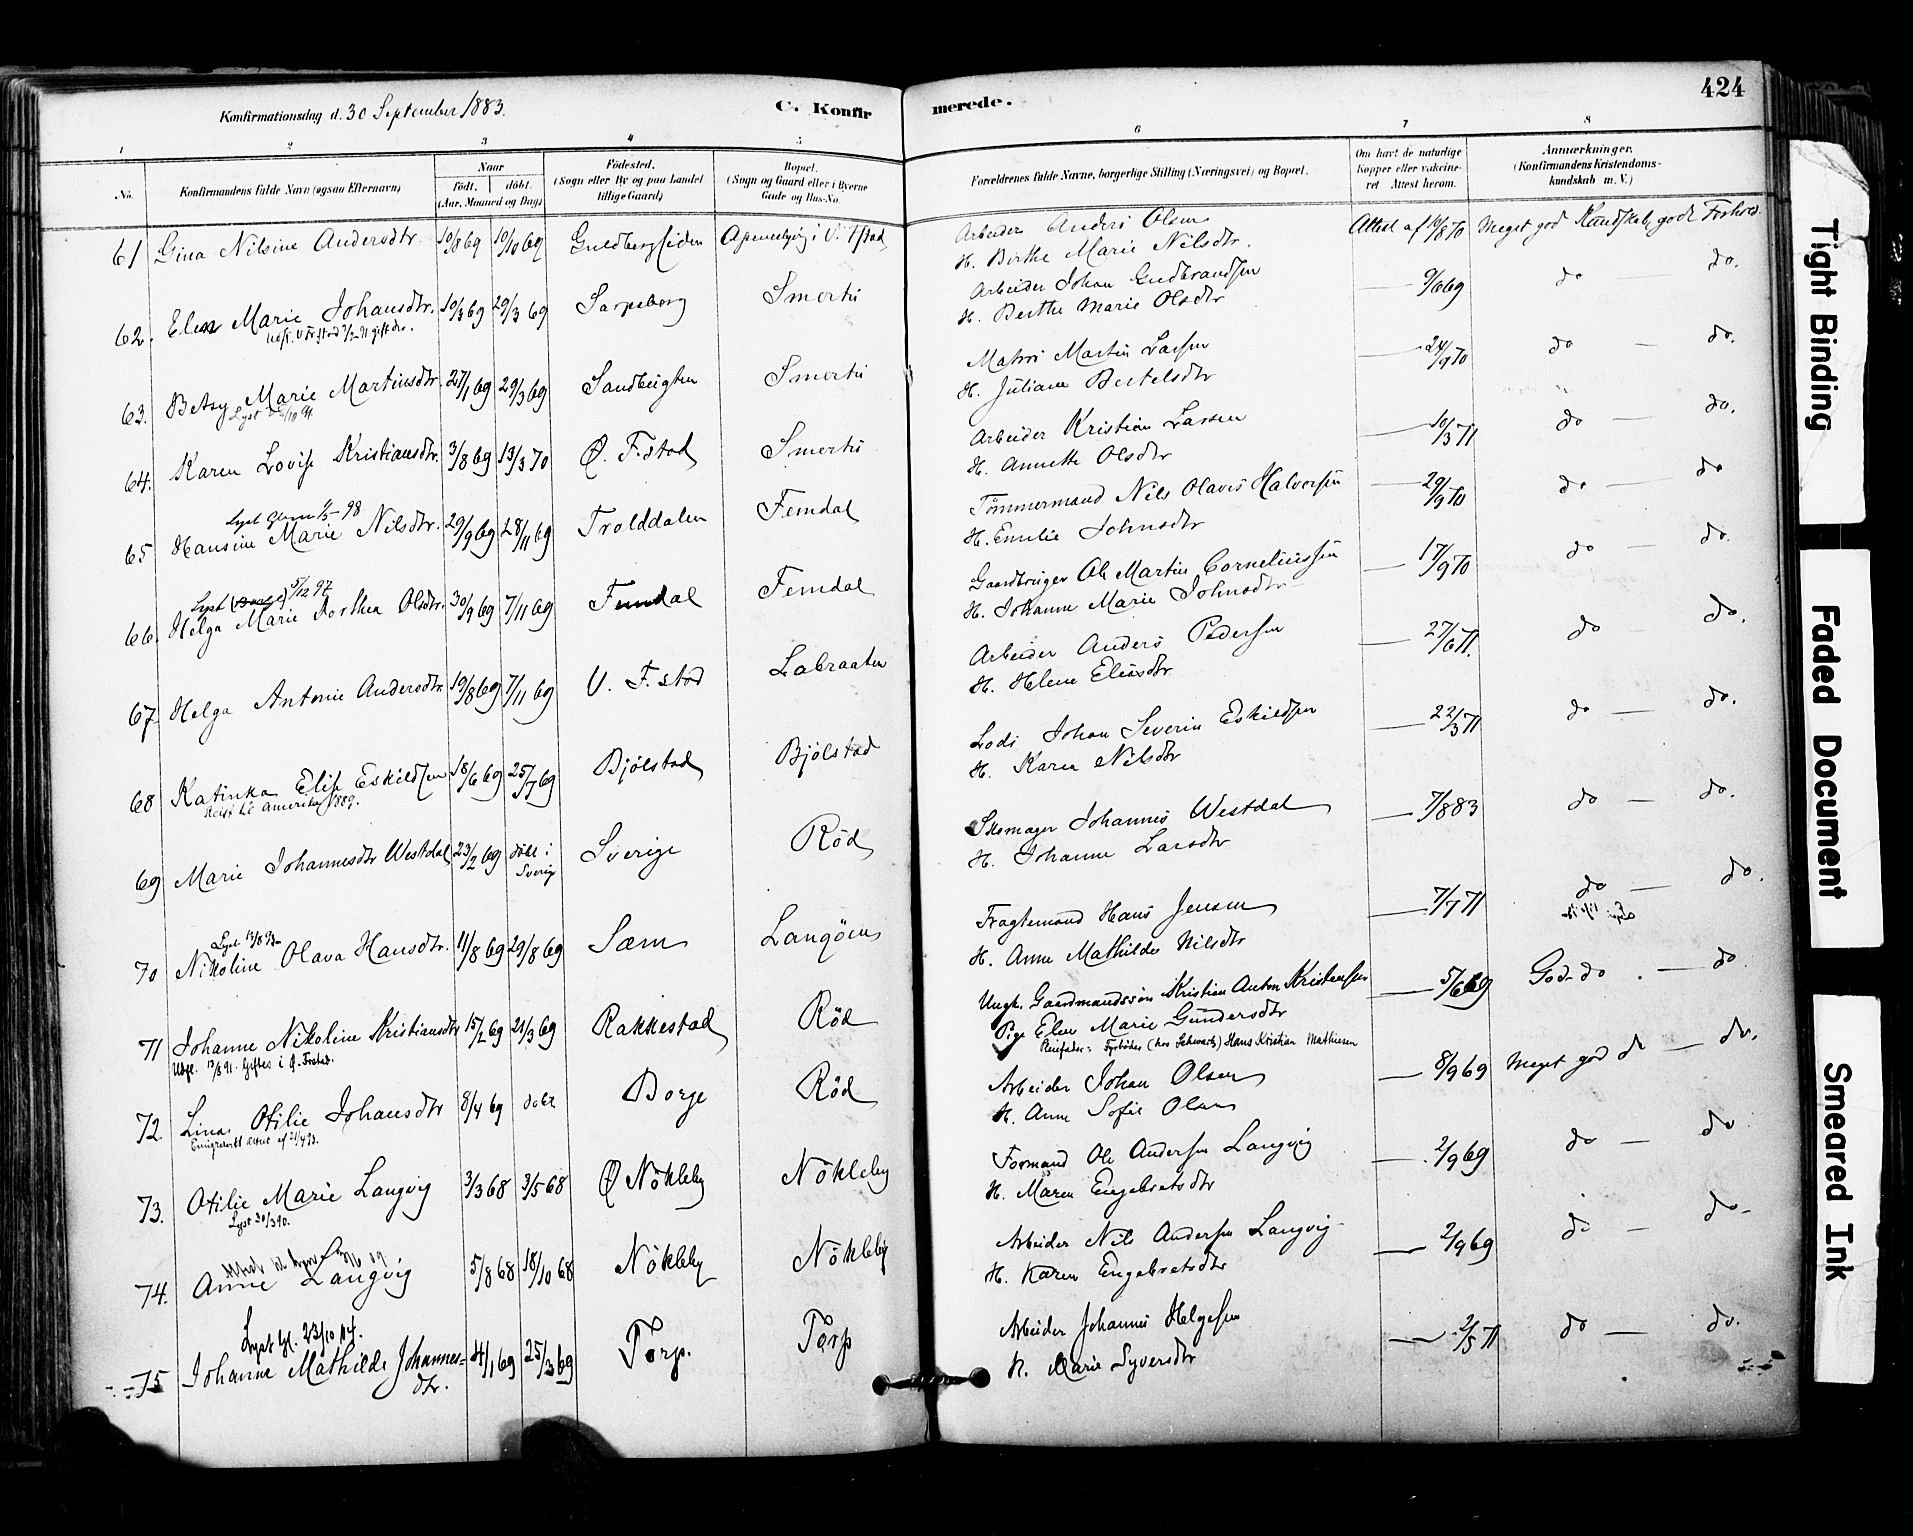 424
Konfirmationsdag d. 30 September 1883.
C. Konfirmerede.
1 2 3 4 5 6 7 8
No.
Konfirmandens fulde Navn (ogsaa Efternavn)
Naar
født. døbt.
(Aar, Maaned og Dag)
Fødested.
(Sogn eller By og paa Landet
tillige Gaard)
Bopæl.
(Sogn og Gaard eller i Byerne
Gade og Hus-No.
Forældrenes fulde Navne, borgerlige Stilling (Næringsvei) og Bopæl.
Om havt de naturlige
Kopper eller vaccine-
ret Attest herom.
Anmærkninger.
(Konfirmandens Kristendoms-
kundskab m. V.)
61 Gina Nilsine Andersdtr. 10/8 69 10/10 69 Guldbergsiden i V. Fstad Arbeider Anders Olsen Attest af 10/8 70 Meget god Kundskab, godt Forhold
H. Birthe Marie Nilsdtr.
62. Elen Marie Johansdtr. 10/3 69 29/3 69 Sarpsborg Smertu Arbeider Johan Gudbrandsen — 9/6 69 do do.
H. Berthe Marie Olsdtr
63. Betsy Marie Martinsdtr. 27/1 69 29/3 69 Sandbugten Smertu Matros Martin Larsen — 24/9 70 do — do.
H. Juliane Bertelsdtr
64. Karen Lovise Kristiansdtr. 3/8 69 13/3 70 Ø. F.stad Smertu Arbeider Kristian Larsen — 10/3 71 do — do.
H. Annette Olsdtr
Lyst Glem 1/5 – 98
65 Hansine Marie Nilsdtr. 29/9 69 28/11 69 Trolddalen Femdal Tømmermand Nils Olavis Halvorsen — 29/9 70 do — do
H. Emilie Johnsdtr
Lyst 5/12 97
66. Helga Marie Dorthea Olsdtr. 30/9 69 7/11 69 Femdal Femdal Gaardbruger Ole Martin Corneliussen — 17/9 70 do — do.
H. Johanne Marie Johnsdtr
67. Helga Antonie Andersdtr. 19/8 69 7/11 69 V. F.stad Labraaten Arbeider Anders Pedersen — 27/6 71. do — do.
H. Helene Eliasdtr
68 Katinka Elise Eskildsen 18/6 69 25/7 69 Bjølstad Bjølstad Lods Johan Severin Eskildsen — 22/3 71 do — do.
Reist til Amerika 1889.
H. Karen Nilsdtr
69 Marie Johannesdtr Westdal 23/2 69 døbt i Sverig Sverige Rød Skomager Johannes Westdal — 7/8 83 do — do.
H. Johanne Larsdtr
Lyst 13/8 93
70 Nikoline Olava Hansdtr. 11/8 69 29/8 69 Sæm Langøen Fragtemand Hans Jensen — 7/7 71 do — do.
H. Anne Mathilde Nilsdtr
71 Johanne Nikoline Kristiansdtr 15/2 69 21/3 69 Rakkestad Rød Ungk. Gaardmandssøn Kristian Anton Kristensen — 5/6 69 God do. — do
Pige Elen Marie Gundersdtr
Udfl. 13/8 91. Giftes i Ø. Frstad.
Pleiefader: Fyrbøder (hos Schwartz) Hans Kristian Mathiesen
72. Lina Otilie Johansdtr 8/4 69 døbt Borge Rød Arbeider Johan Olsen — 8/9 69 Meget god do — do.
Emigrerentl. attest af 21/4 93.
H. Anne Sofie Olsen
73. Otilie Marie Langvig 3/3 68 3/5 68 Ø Nøkleby Nøkleby Formand Ole Andersen Langvig — 2/9 69 do — do
Lyst 30/3 90.
H. Maren Engebretsdtr
74. Anne Langvig 5/8 68 18/10 68 Nøkleby Nøkleby Arbeider Nils Andersen Langvig — 2/9 69 do — do
H. Karen Engebretsdtr
Lyst Gl. 23/10 04.
75 Johanne Mathilde Johannes-
dtr. 4/1 69 25/3 69 Torp. Torp Arbeider Johannes Helgesen — 2/5 71 do — do.
H. Marie Syversdtr
Tight Binding
Faded Document
Smeared Ink